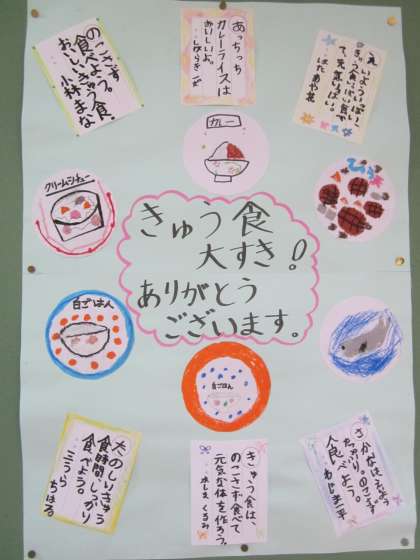 のこさず。
食べよう。
おいしいきゅう食。
小林まな
あっちっち
カレーライスは
おいしいよ。
えいようい、ぱい、
きゅう食い、ぱい食べ
て、元気い、ぱい。
はた あや花
カレー
クリームシチュー
きゅう食
大すき!
ありがとう
ございます。
白ごはん
白ごはん
たのしいきゅう
食時間しっかり
食べよう。
三うら
ちはる。
きゅう食は、
のこさず食べて
元気な体を作ろう。
くるみ
さかなはえいよう
たっぷり。のこさず
食べよう。